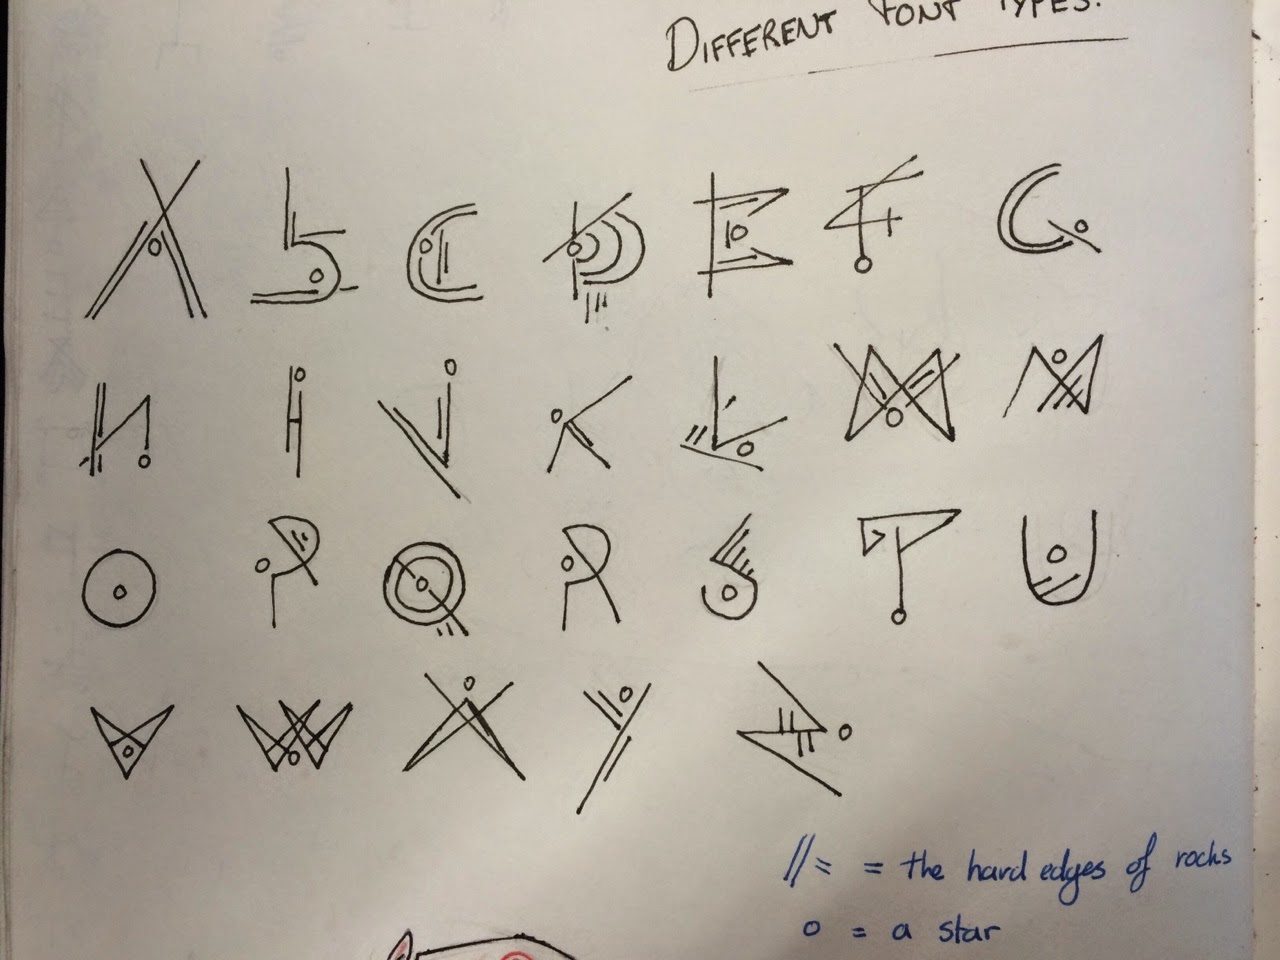 DIFFERENT FONT TYPES.
A b C D E F G
H I J K L M N
O P Q R S T U
V W X Y Z
//≈ = the hard edges of rocks
o = a star